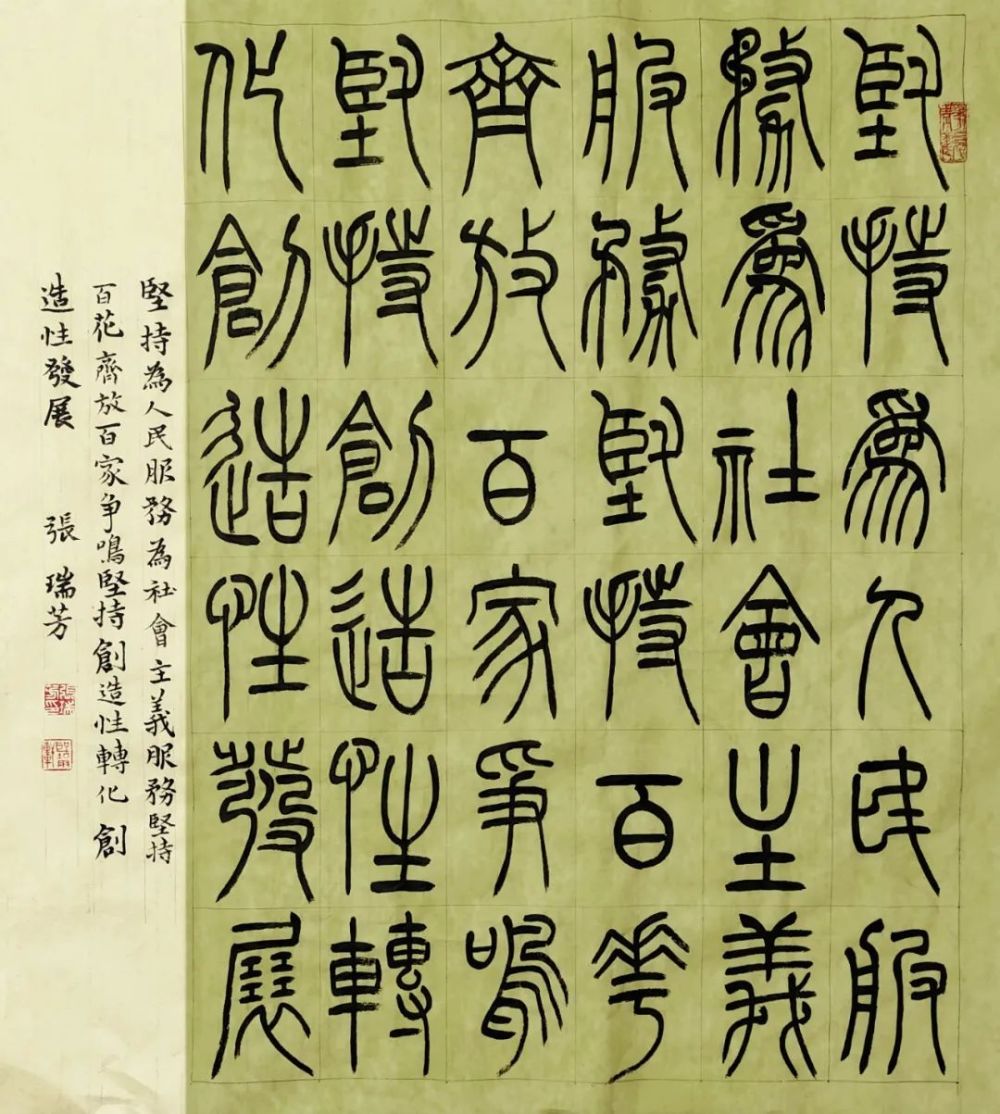 堅持爲人民服
務爲社會主義
服務堅持百花
齊放百家爭鳴
堅持創造性轉
化創造性發展
堅持為人民服務為社會主義服務堅持
百花齊放百家争鳴堅持創造性轉化創
造性發展 張瑞芳